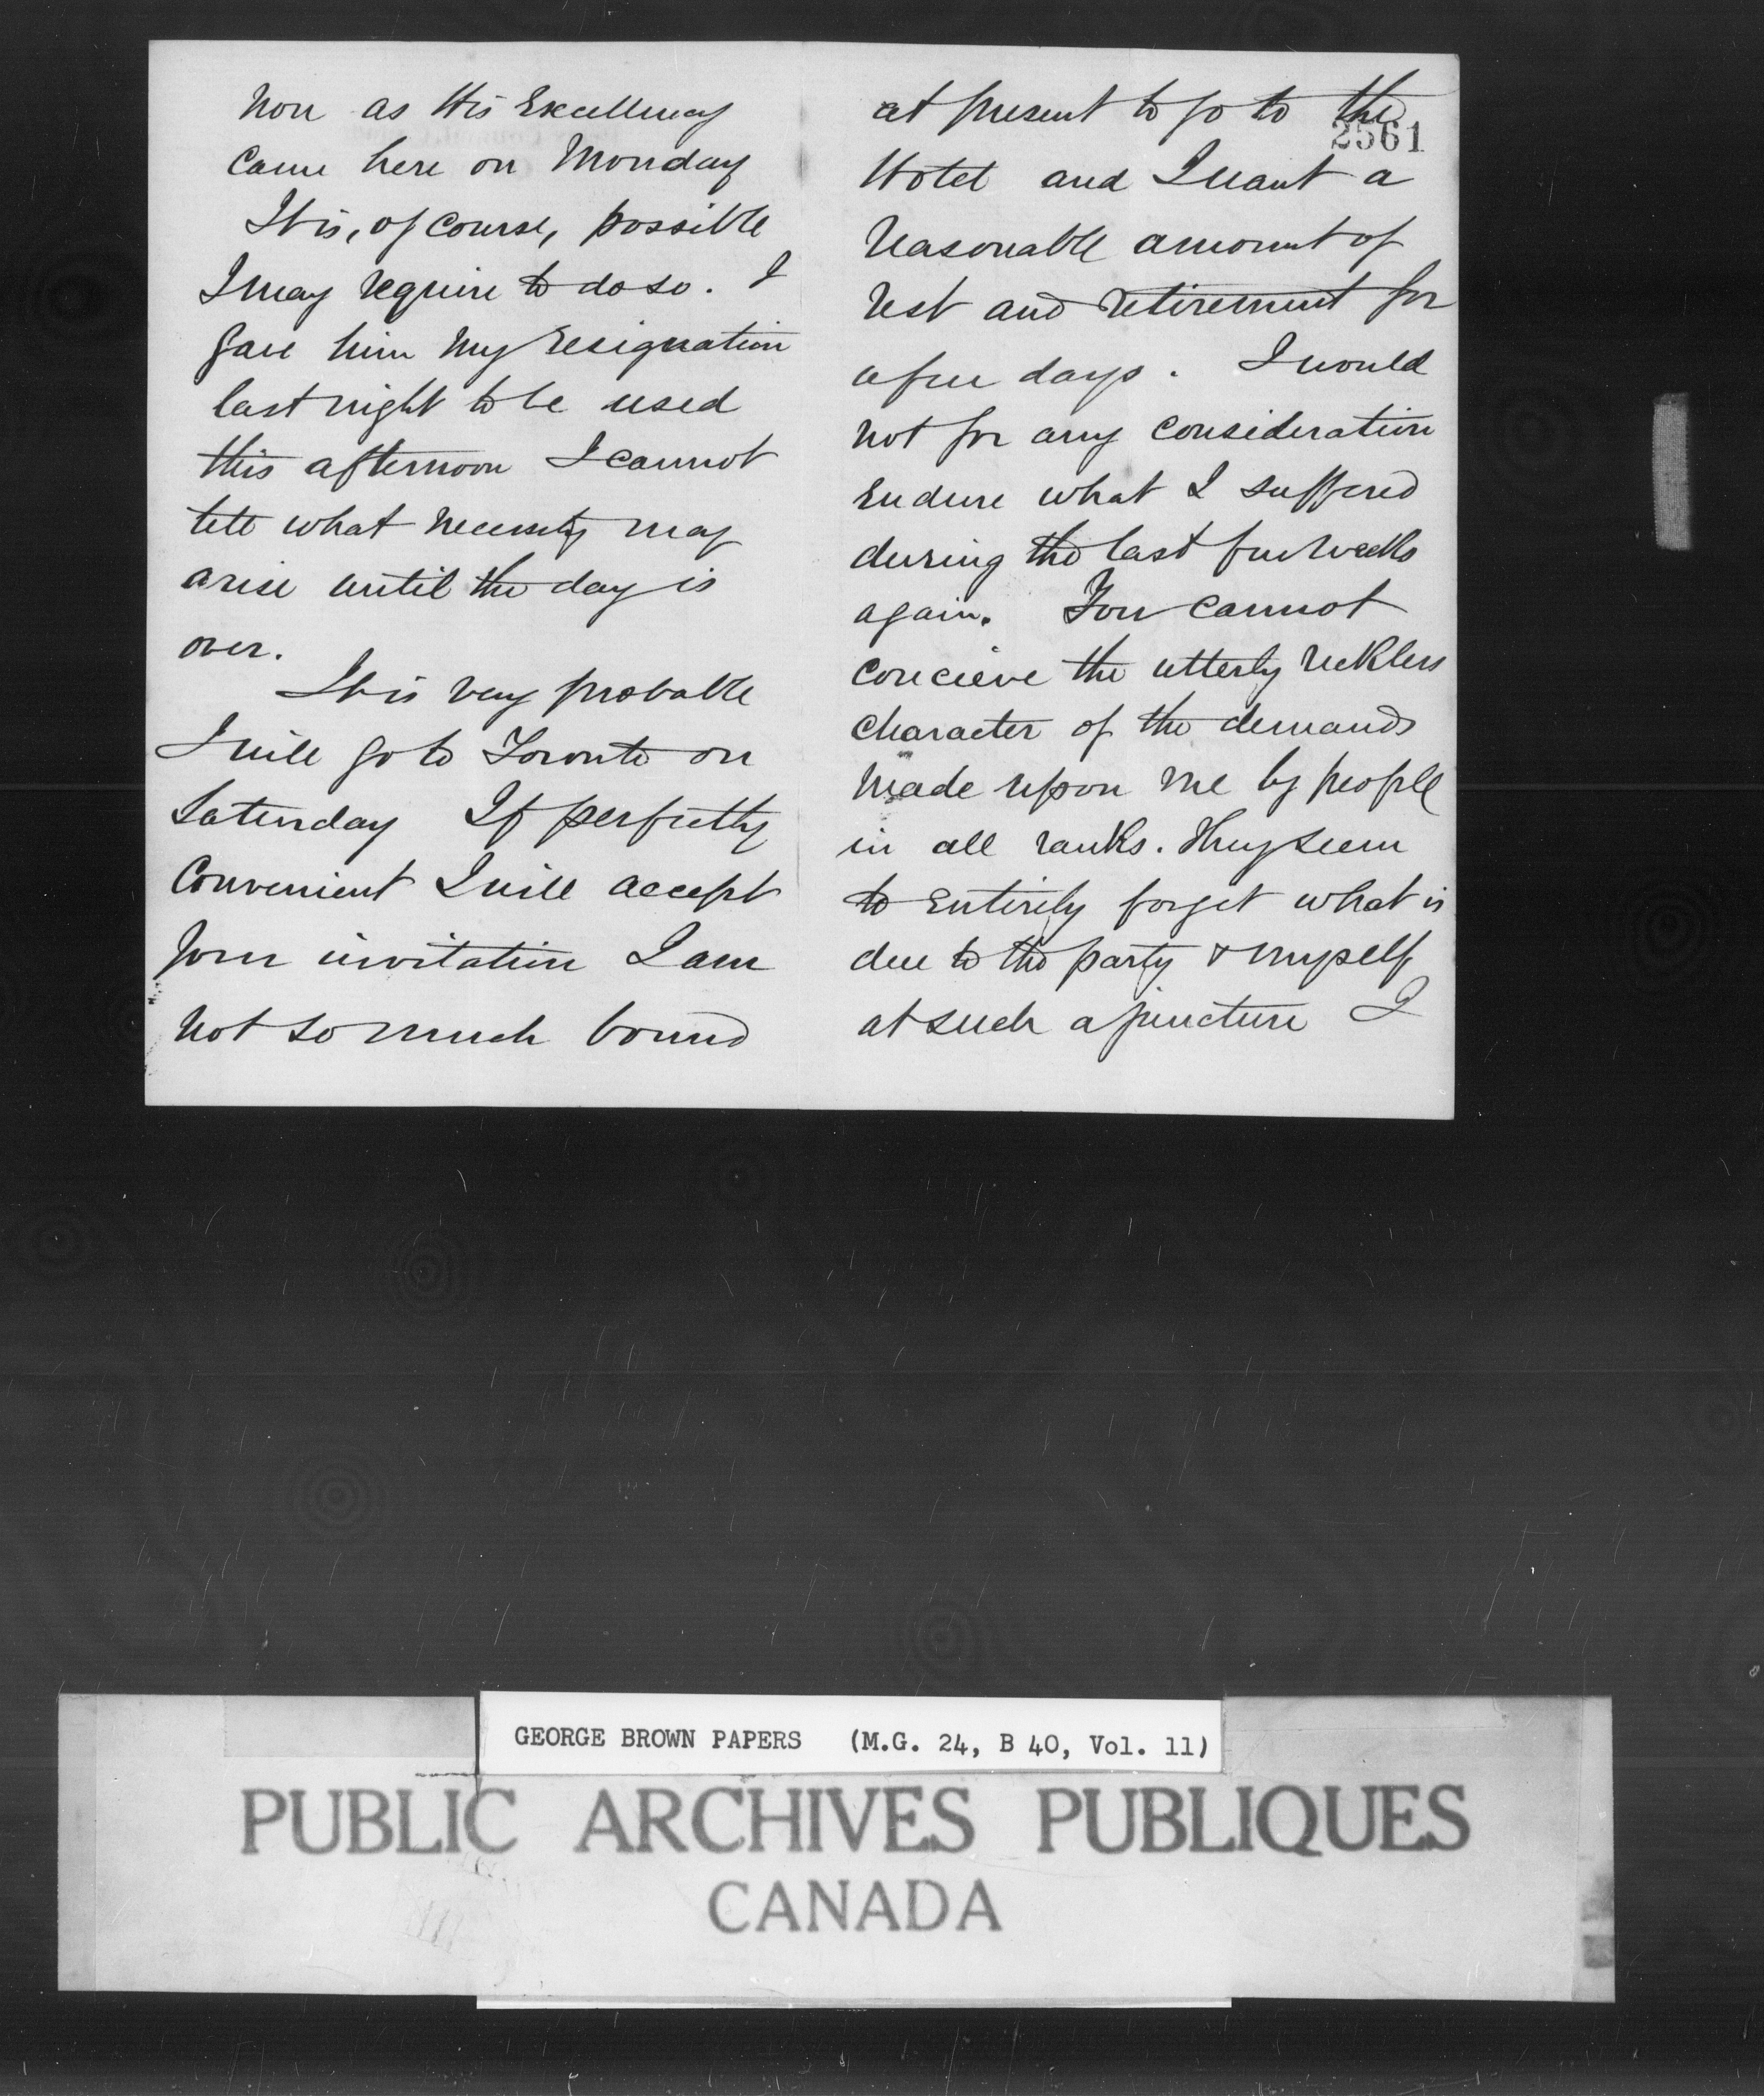 now as His Excellency
came here on Monday
It is, of course, possible
I may require to do so. I
gave him my resignation
last night to be used
this afternoon I cannot
tell what necessity may
arise until the day is
over.
It is very probable
I will go to Toronto on
Saturday If perfectly
convenient I will accept
your invitation I am
not so much bound
at present to go to the
2561
Hotel and I want a
reasonable amount of
rest and retirement for
a few days. I would
not for any consideration
endure what I suffered
during the last few weeks
again. You cannot
concieve the utterly reckless
character of the demands
made upon me by people
in all ranks. They seem
to entirely forget what is
due to the party & myself
at such a juncture I
GEORGE BROWN PAPERS (M.G. 24, B 40, Vol. 11)
PUBLIC ARCHIVES PUBLIQUES
CANADA